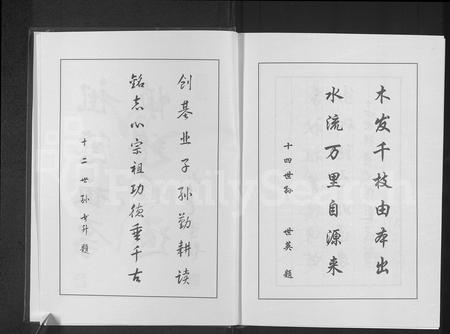 木发千枝由本出
水流万里自源来
十四世孙 世英 题
创基业子孙勤耕读
铭志心宗祖功德垂千古
十二世孙 升 题
FamilySearch